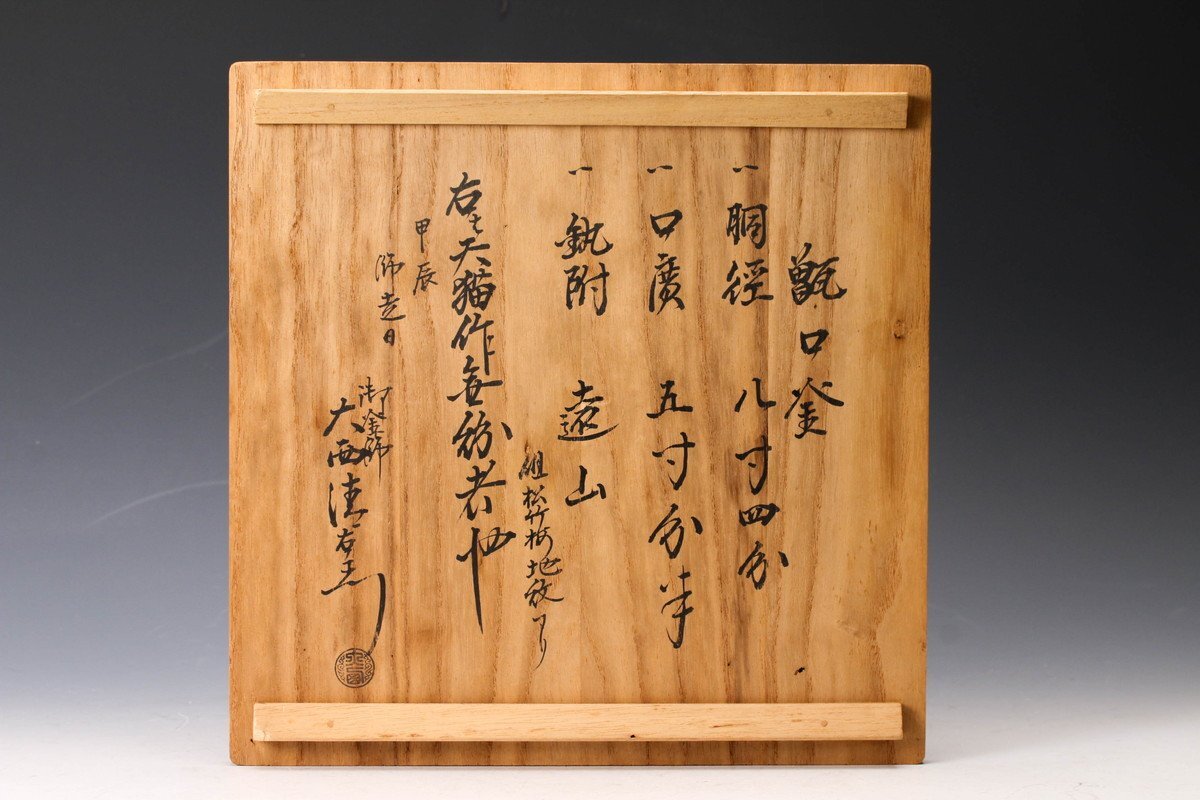 甑口釜
一 胴径 八寸四分
一 口廣 五寸分半
一 釻附 遠山
組松竹梅地紋アリ
右ハ天猫作無紛者也
甲辰
師走日
御釜師
大西清右衛門